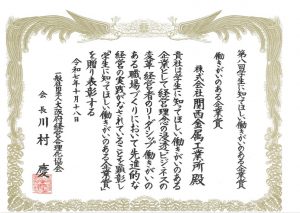 第八回学生に知ってほしい働きがいのある企業賞
働きがいのある企業賞
株式会社 関西金属工業所 殿
貴社は学生に知ってほしい働きがいのある
企業として経営理念の浸透ビジネスの
変革経営者のリーダーシップ働きがいの
ある職場づくりにおいて先進的な
経営の実践がなされていることを顕彰し
学生に知ってほしい働きがいのある企業賞
を贈り表彰する
令和七年十月十八日
会長 川村 慶